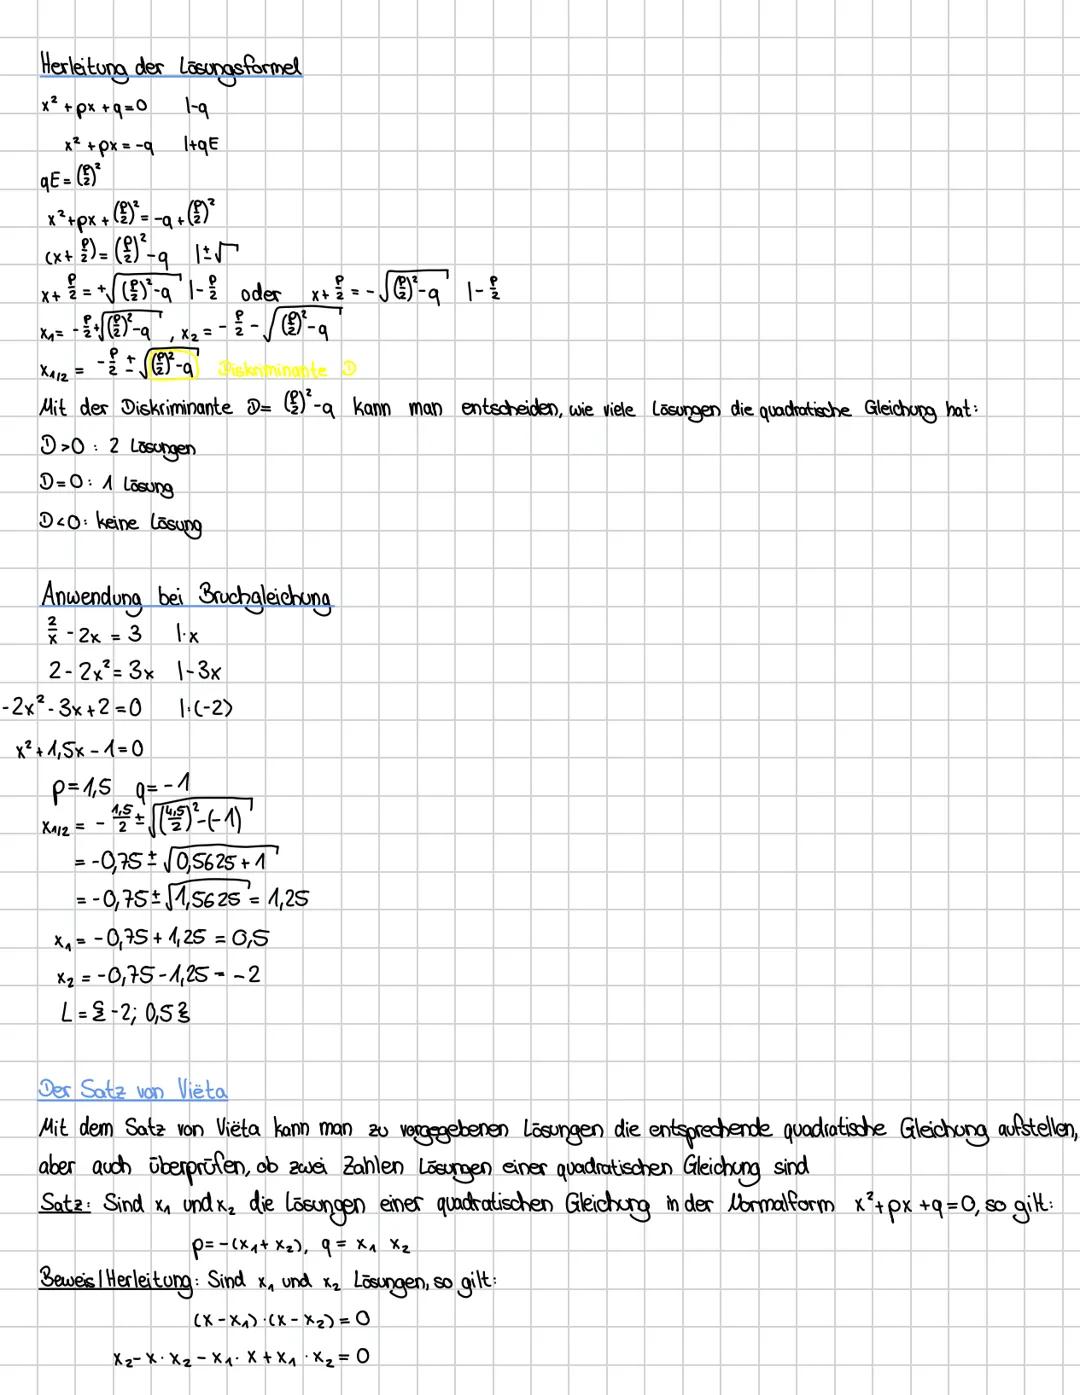 Herleitung der Lösungsformel
x² + px + q = 0 |-q
x² + px = -q |+qE
qE = (p/2)²
x² + px + (p/2)² = -q + (p/2)²
(x + p/2) = (p/2)² - q |±√
x + p/2 = +√((p/2)² - q) |-p/2 oder x + p/2 = -√((p/2)² - q) |-p/2
x₁ = -p/2 + √((p/2)² - q), x₂ = -p/2 - √((p/2)² - q)
x₁/₂ = -p/2 ± √((p/2)² - q) Diskriminante D
Mit der Diskriminante D = (p/2)² - q kann man entscheiden, wie viele Lösungen die quadratische Gleichung hat:
D>0: 2 Lösungen
D=0: 1 Lösung
D<0: keine Lösung
Anwendung bei Bruchgleichung
2/x - 2x = 3 |·x
2 - 2x² = 3x |-3x
-2x² - 3x + 2 = 0 |:(-2)
x² + 1,5x - 1 = 0
p = 1,5 q = -1
x₁/₂ = -1,5/2 ± √((1,5/2)² - (-1))
= -0,75 ± √(0,5625 + 1)
= -0,75 ± √1,5625 = 1,25
x₁ = -0,75 + 1,25 = 0,5
x₂ = -0,75 - 1,25 = -2
L = {-2; 0,5}
Der Satz von Viëta
Mit dem Satz von Viëta kann man zu vorgegebenen Lösungen die entsprechende quadratische Gleichung aufstellen,
aber auch überprüfen, ob zwei Zahlen Lösungen einer quadratischen Gleichung sind
Satz: Sind x₁ und x₂ die Lösungen einer quadratischen Gleichung in der Normalform x² + px + q = 0, so gilt:
p = -(x₁ + x₂), q = x₁ x₂
Beweis/Herleitung: Sind x₁ und x₂ Lösungen, so gilt:
(x - x₁) · (x - x₂) = 0
x₂ - x · x₂ - x₁ · x + x₁ · x₂ = 0